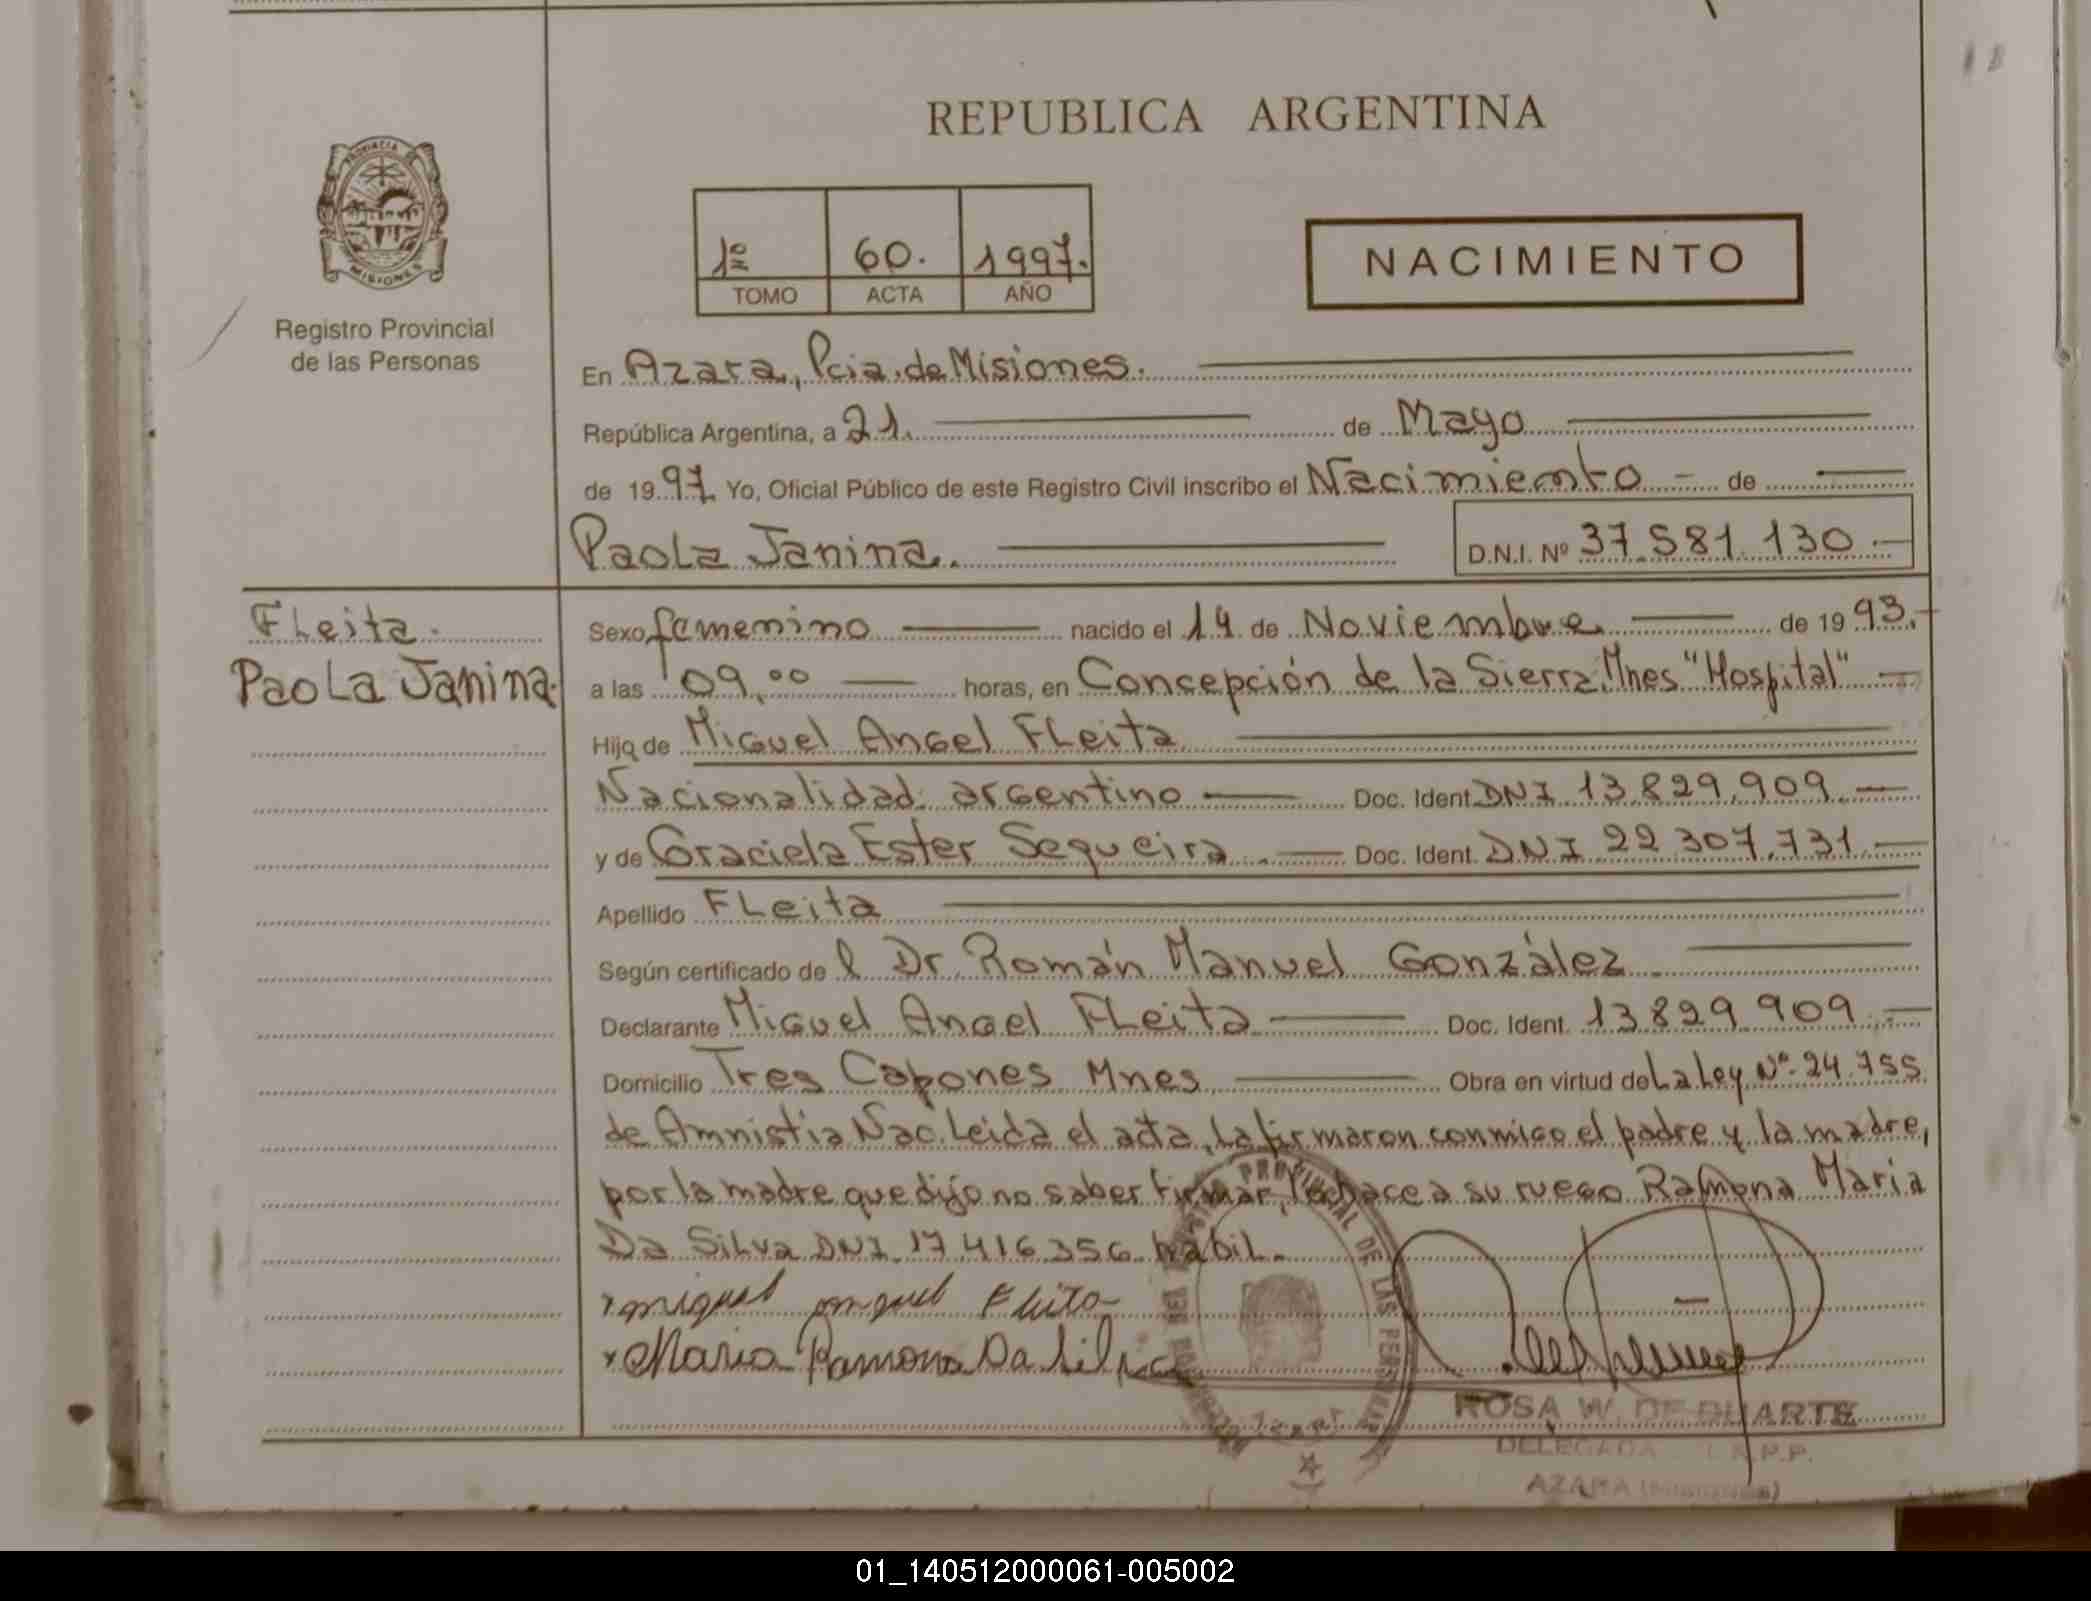 REPUBLICA ARGENTINA
PROVINCIA DE
MISIONES
Registro Provincial
de las Personas
1º 60. 1997.
TOMO ACTA AÑO
NACIMIENTO
En Azara, Pcia. de Misiones.
República Argentina, a 21. de Mayo
de 1997 Yo, Oficial Público de este Registro Civil inscribo el Nacimiento - de
Paola Janina. D.N.I. Nº 37.581.130.-
Fleita.
Paola Janina.
Sexo femenino nacido el 14 de Noviembre de 1993.-
a las 09,00 horas, en Concepción de la Sierra, Mnes "Hospital" -
Hija de Miguel Angel Fleita
Nacionalidad argentino Doc. Ident. DNI 13.829.909.-
y de Graciela Ester Sequeira.- Doc. Ident. DNI 22.307.731.-
Apellido Fleita
Según certificado del Dr. Román Manuel González
Declarante Miguel Angel Fleita Doc. Ident. 13.829.909.-
Domicilio Tres Capones Mnes Obra en virtud de La Ley Nº 24.755
de Amnistia Nac. Leida el acta, la firmaron conmigo el padre y la madre,
por la madre que dijo no saber firmar, lo hace a su ruego Ramona Maria
Da Silva DNI 17.416.356 habil.-
miguel angel Fleita
Maria Ramona Da Silva
REGISTRO PROVINCIAL DE LAS PERSONAS
AZARA
ROSA W. DE DUARTE
DELEGADA R.P.P.
AZARA (MISIONES)
01_140512000061-005002